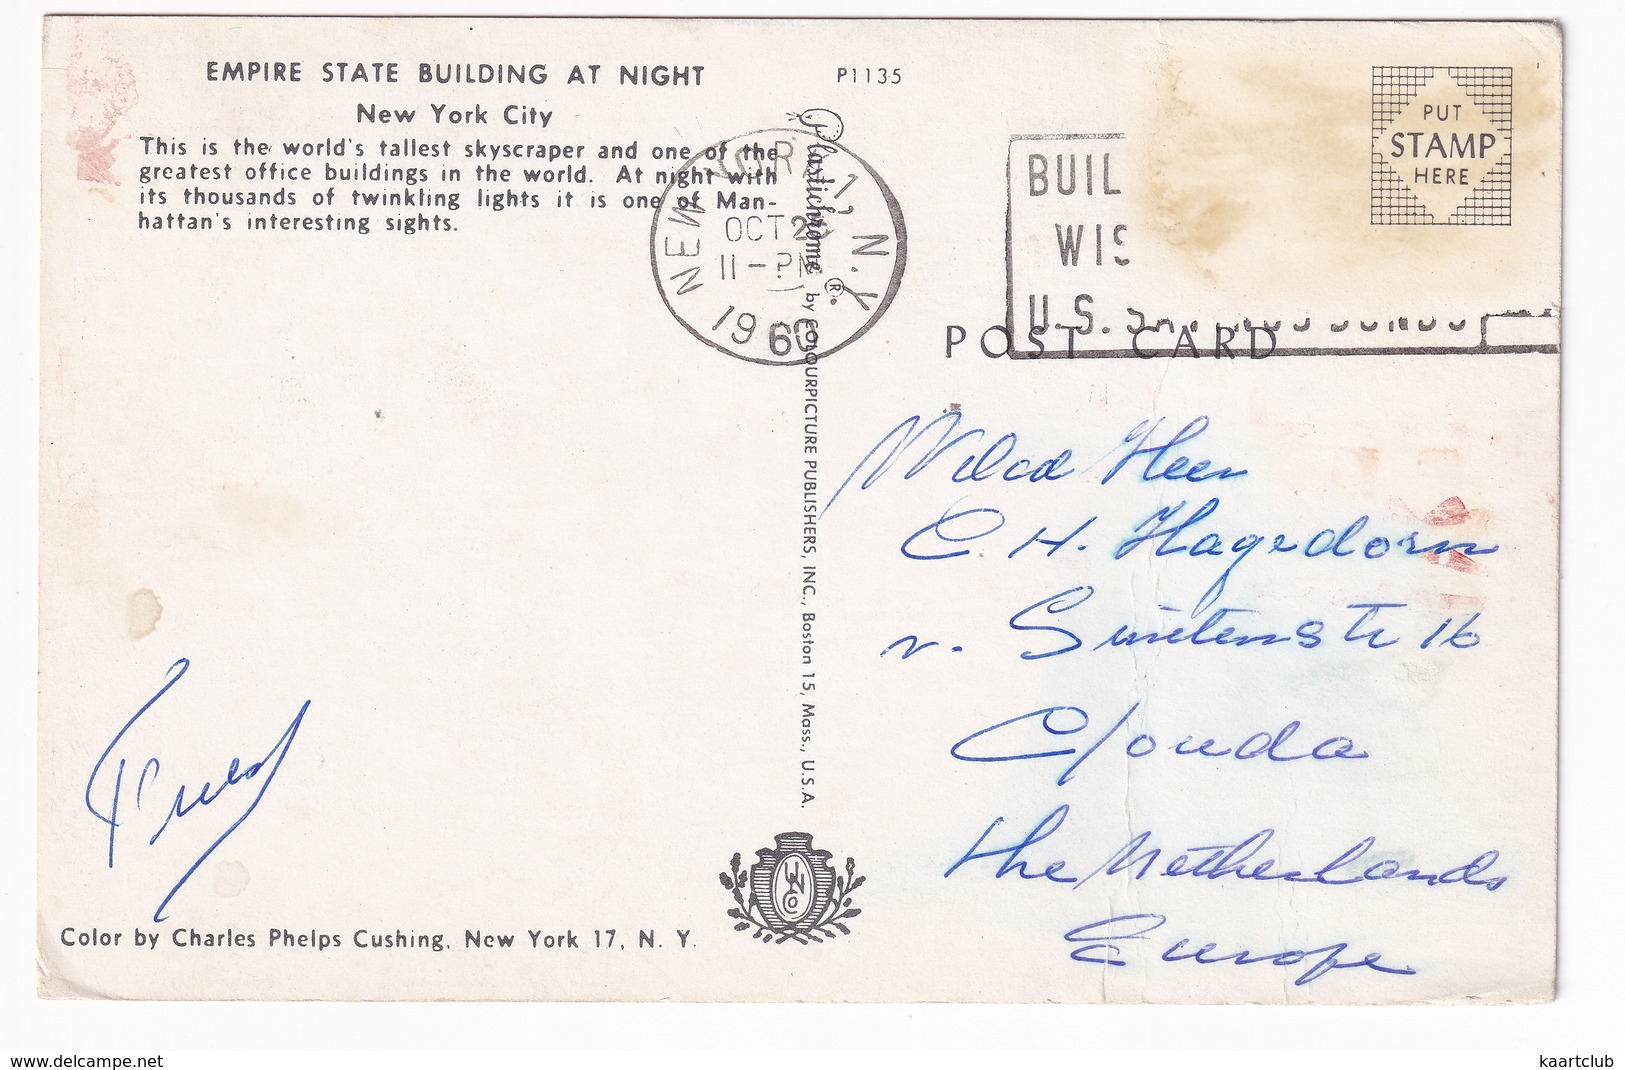 EMPIRE STATE BUILDING AT NIGHT
New York City
This is the world's tallest skyscraper and one of the
greatest office buildings in the world. At night with
its thousands of twinkling lights it is one of Man-
hattan's interesting sights.
P1135
Plastichrome ® by COLOURPICTURE PUBLISHERS, INC., Boston 15, Mass., U.S.A.
NEW YORK 1, N.Y.
OCT 2
11-PM
1960
BUIL
WIS
U.S. SAVINGS BONDS
PUT
STAMP
HERE
POST CARD
Heer
C. H. Hagedorn
v. 16
Gouda
The Netherlands
Europe
Color by Charles Phelps Cushing, New York 17, N. Y.
www.delcampe.net
kaartclub